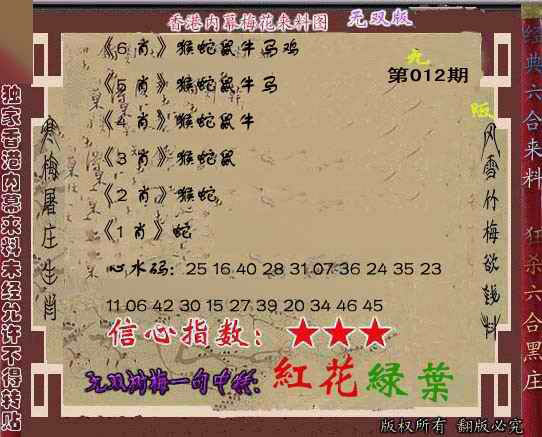 香港内幕梅花来料图 无双版
《6 肖》猴蛇鼠牛马鸡
《5 肖》猴蛇鼠牛马
《4 肖》猴蛇鼠牛
《3 肖》猴蛇鼠
《2 肖》猴蛇
《1 肖》蛇
第012期
心水码: 25 16 40 28 31 07 36 24 35 23
11 06 42 30 15 27 39 20 34 46 45
信心指数: ★★★
紅花綠葉
独家香港内幕来料未经允许不得转贴
寒梅屠庄生肖
风雪竹梅欲钱料
经典六合来料
狂杀六合黑庄
版权所有 翻版必究